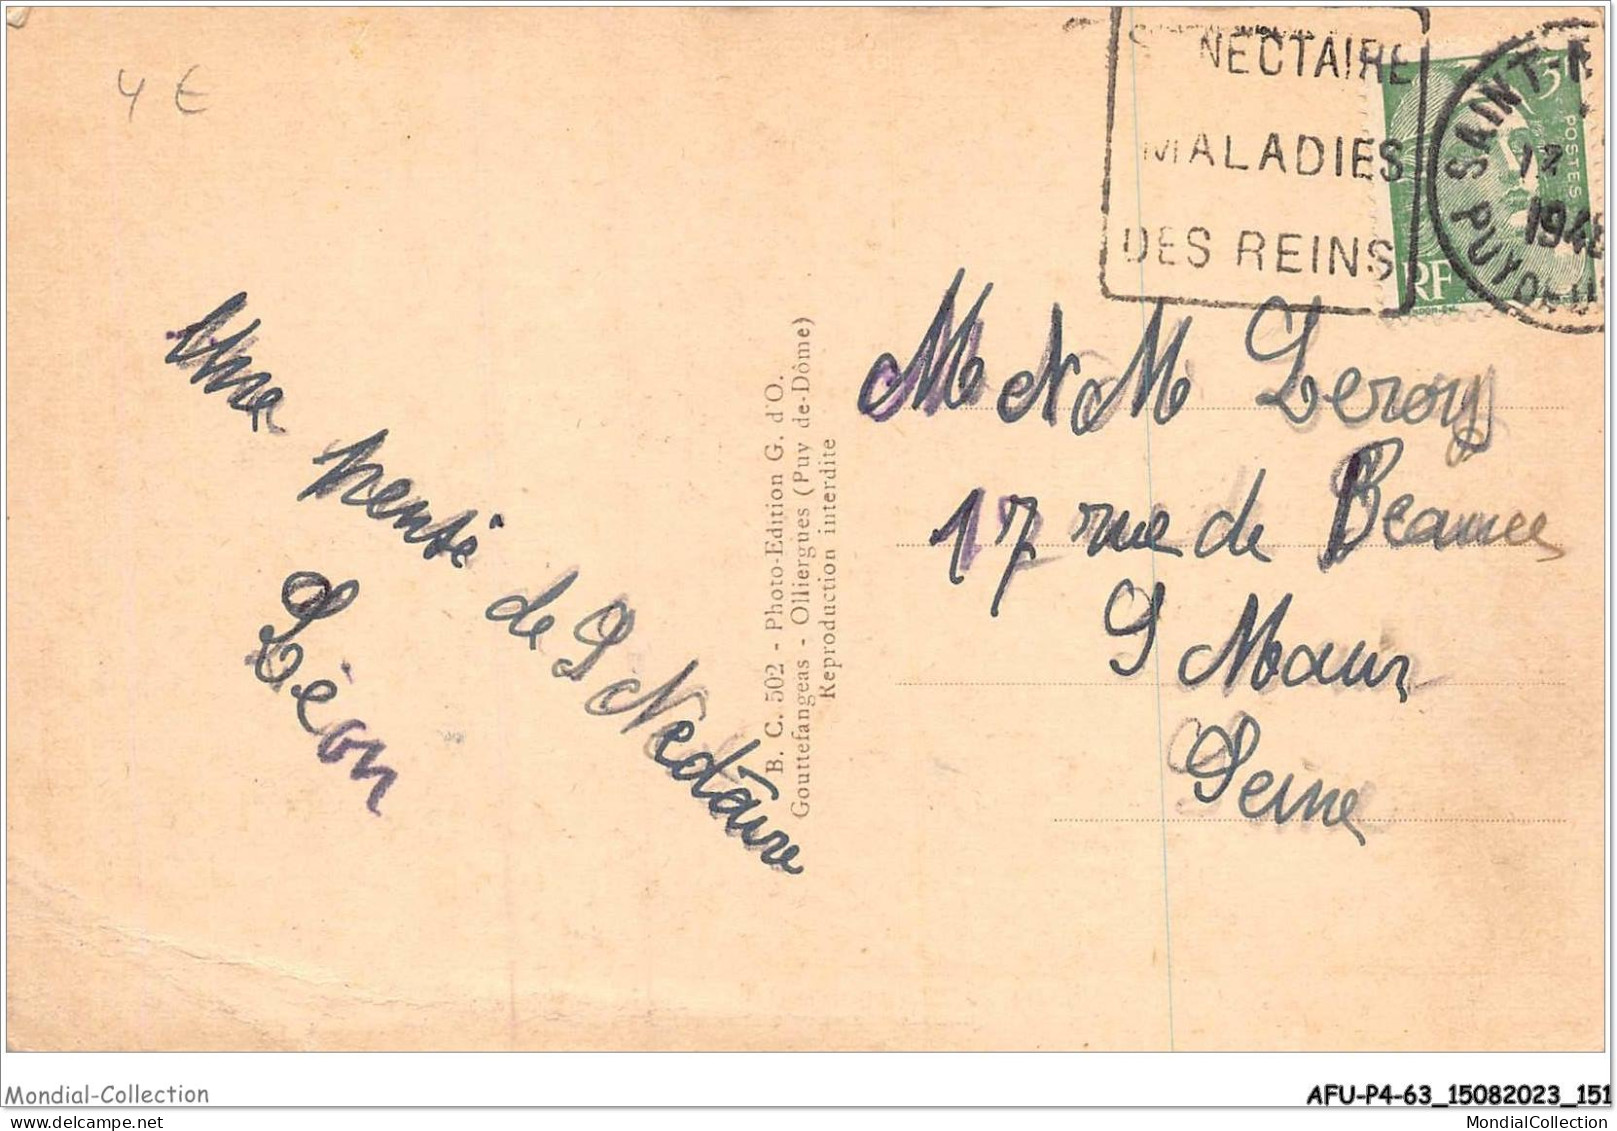 4 €
St NECTAIRE
MALADIES
DES REINS
SAINT-NE
17
1948
PUY DE D
3F
POSTES
RF
Une pensé
de St Nectaire
Léon
B. C. 502 - Photo-Edition G. d'O.
Gouttefangeas - Olliergues (Puy-de-Dôme)
Reproduction interdite
M et Mme Leroy
17 rue de Beaune
St Maur
Seine
Mondial-Collection
AFU-P4-63_15082023_151
MondialCollection